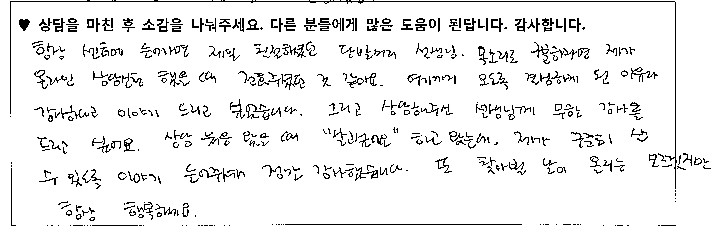 ♥ 상담을 마친 후 소감을 나눠주세요. 다른 분들에게 많은 도움이 된답니다. 감사합니다.
항상 센터에 들어가면 제일 친절하셨던 단발머리 선생님. 목소리로 제가
온라인 상담번호 했을 때 전화주셨던 것 같아요. 여기까지 오도록 결정하게 된 이유라
감사하다고 이야기 드리고 싶었습니다. 그리고 상담해주신 선생님께 무한 감사를
드리고 싶어요. 상담 받을 때 하고 왔는데, 제가 살
수 있도록 이야기 들어주셔서 정말 감사했습니다. 또 찾아뵐 날이 올지는 모르겠지만
항상 행복하세요.